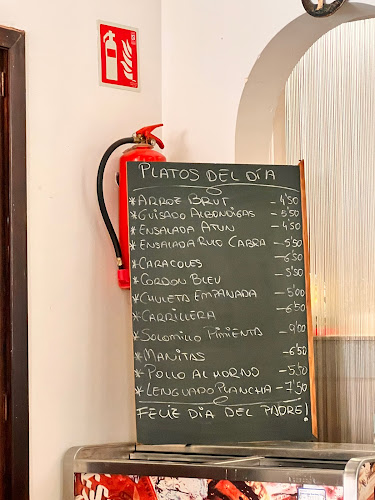 PLATOS DEL DÍA
*ARROZ BRUT - 4'50
*GUISADO ALBONDIGAS - 5'50
*ENSALADA ATUN - 4'50
*ENSALADA RULO CABRA - 5'50
*CARACOLES - 6'50
*CORDON BLEU - 5'50
*CHULETA EMPANADA - 5'00
*CARRILLERA - 6'50
*SOLOMILLO PIMIENTA - 9'00
*MANITAS - 6'50
*POLLO AL HORNO - 5'50
*LENGUADO PLANCHA - 7'50
FELIZ DIA DEL PADRE!